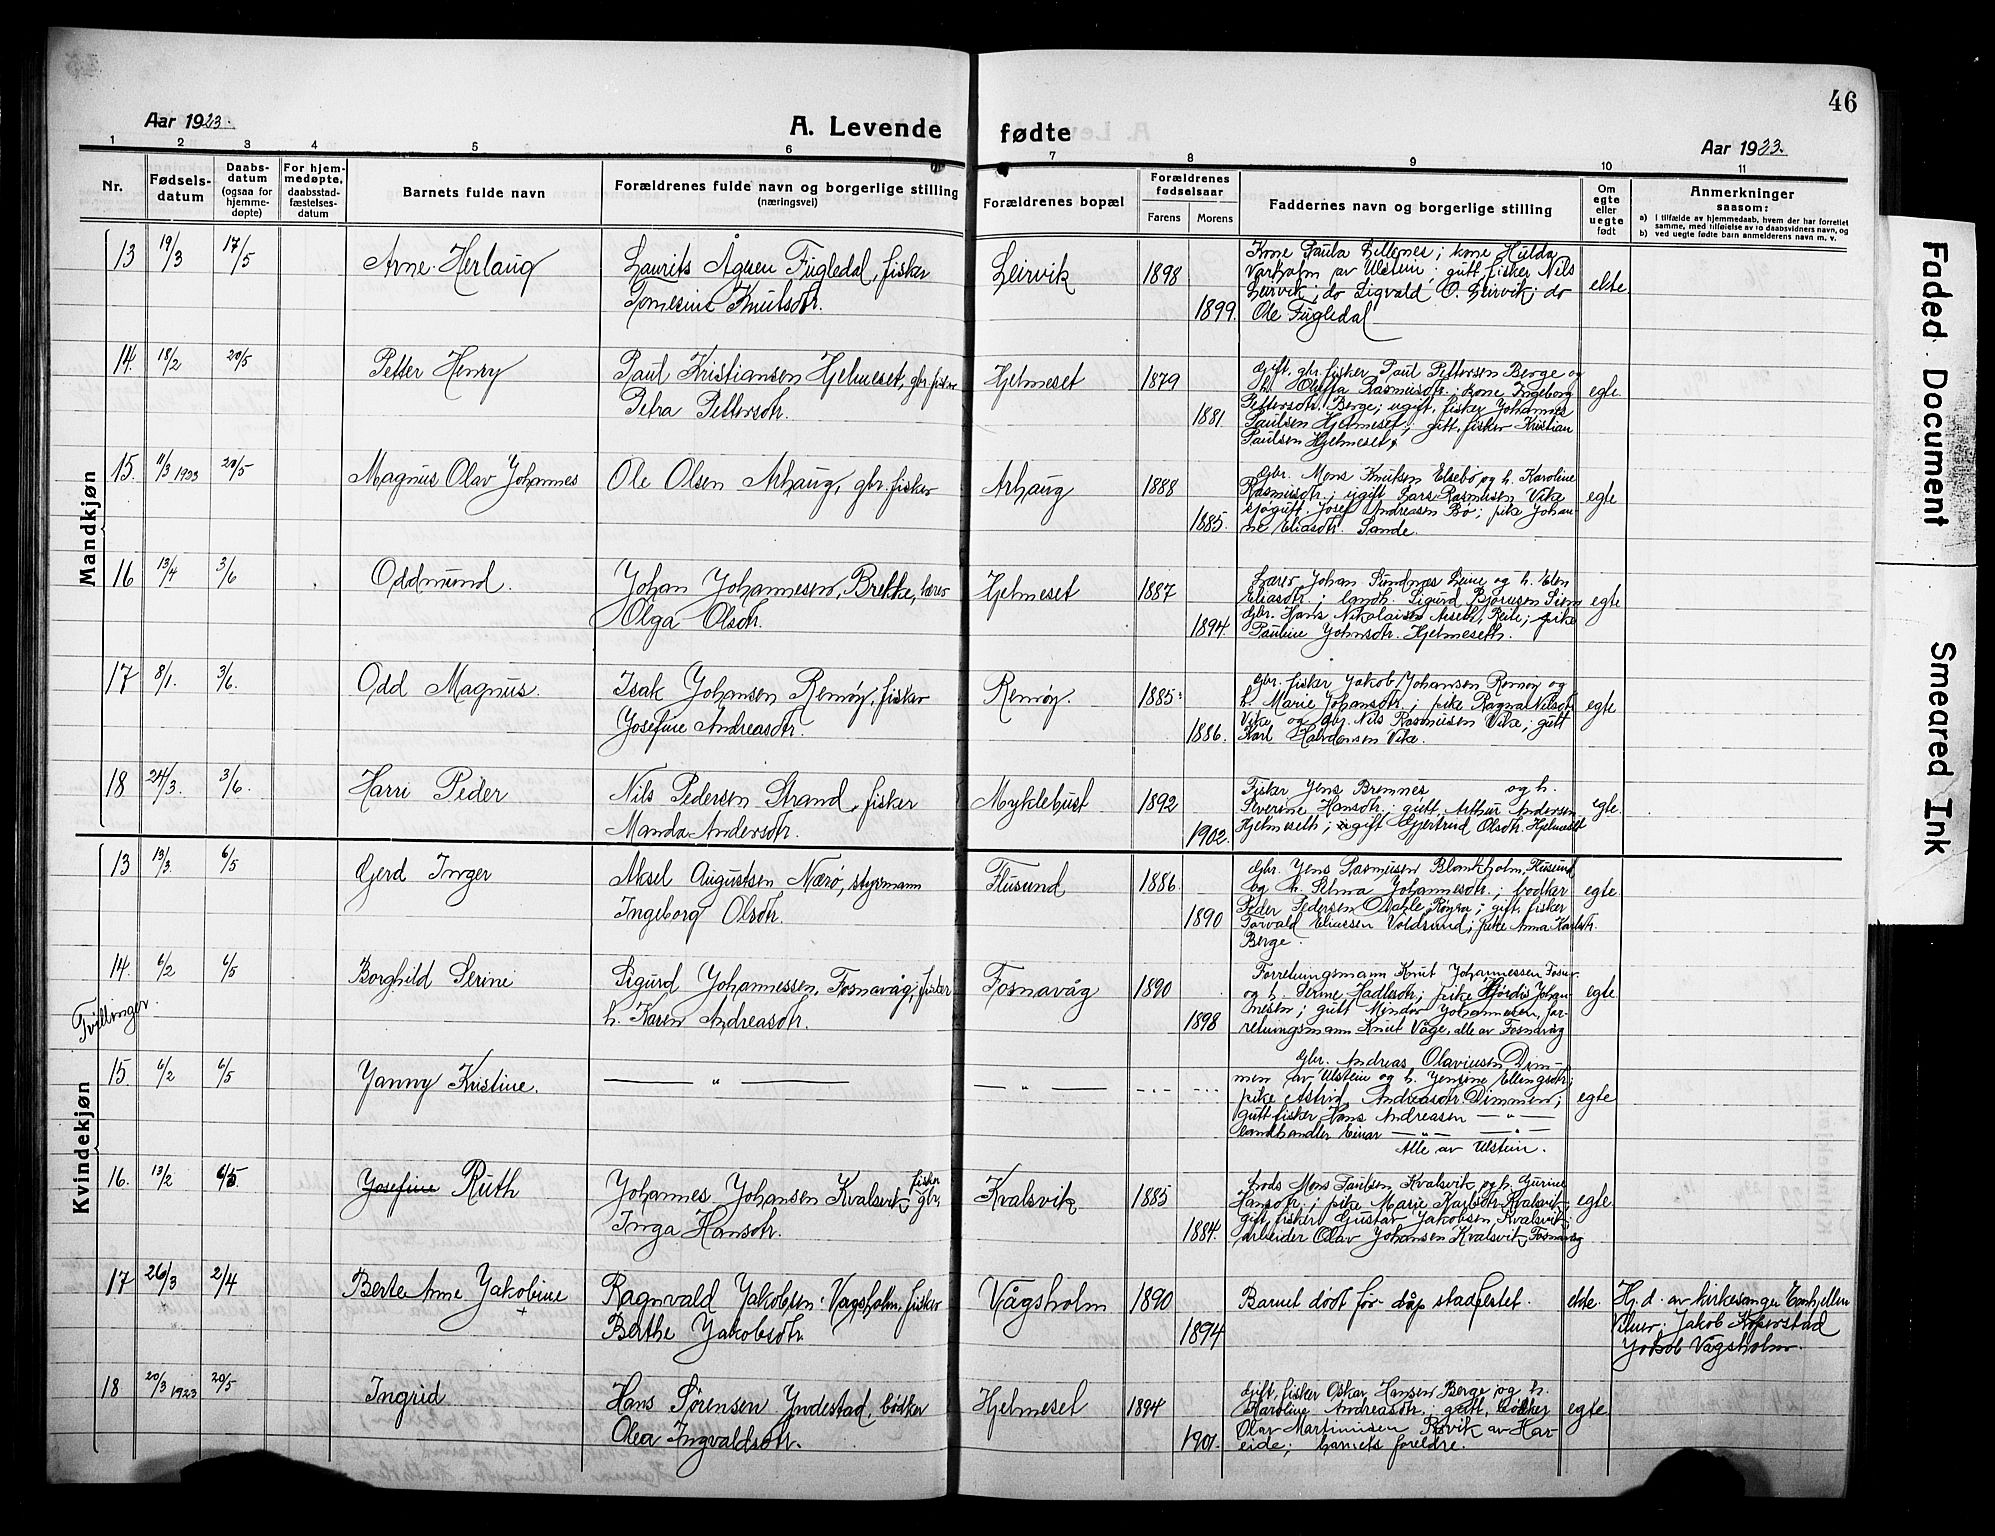 46
Aar 1923.
A. Levende fødte
Aar 1923.
1 2 3 4 5 6 7 8 9 10 11
Nr.
Fødsels-
datum
Daabs-
datum
(ogsaa for
hjemme-
døpte)
For hjem-
medøpte,
daabsstad-
fæstelses-
datum
Barnets fulde navn
Forældrenes fulde navn og borgerlige stilling
(næringsvei)
Forældrenes bopæl
Forældrenes
fødselsaar
Farens Morens
Faddernes navn og borgerlige stilling
Om
egte
eller
uegte
født
Anmerkninger
saasom:
a) i tilfælde av hjemmedaab, hvem der har forrettet
samme, med tilføielse av to daabsvidners navn, og
b) ved uegte fødte barn anmelderens navn m. v.
Mandkjøn
13 19/3 17/5 Arne Herlaug
Laurits Ågsen Fugledal, fisker
Tomesine Knutsdtr.
Leirvik 1898 1899.
Kone Paula Lillenes; kone Hulda
Varholm av Ulstein; gutt, fisker Nils
Leirvik; do Sigvald O. Leirvik; do
Ole Fugledal
ekte
14. 18/2 20/5 Petter Henry
Paul Kristiansen Hjelmeset, gbr. fisker
Petra Pettersdtr.
Hjelmeset 1879 1881
Gift, gbr. fisker Paul Pettersen Berge og
h. Oluffa Rasmusdtr.; kone Ingeborg
Pettersdtr. Berge; ugift, fisker Johannes
Paulsen Hjelmeset; gutt, fisker Kristian
Paulsen Hjelmeset
egte
15. 11/3 1923 20/5 Magnus Olav Johannes
Ole Olsen Arhaug, gbr. fisker
Arhaug 1888 1885.
Gbr. Mons Knutsen Elsebø og h. Karoline
Rasmusdtr.; ugift Lars Rasmusen Vike
sjøgutt Josef Andreasen Bø; pike Johan-
ne Eliasdtr. Sande.
egte
16 13/4 3/6 Oddmund.
Johan Johannesen Brekke, lærer
Olga Olsdtr.
Hjelmeset 1887 1894.
Lærer Johan Sundnæs Leine og h. Elen
Eliasdtr.; landh. Sigurd Bjørnsen Siem
Gbr. Hans Nikolaisen Aseth, Reite; pike
Pauline Johnsdtr. Hjelmeseth.
egte
17 8/1. 3/6. Odd Magnus.
Isak Johansen Remøy, fisker
Josefine Andreasdtr.
Remøy. 1885 1886.
Gbr. fisker Jakob Johansen Remøy og
h. Marie Johansdtr.; pike Ragna Nilsdtr.
Vike, og gbr. Nils Rasmusen Vike; gutt
Karl Halvdansen Vike.
egte
18 24/3. 3/6. Harri Peder
Nils Pedersen Strand, fisker
Manda Andersdtr.
Myklebust 1892 1902.
Fisker Jens Bremnes og h.
Severine Hansdtr.; gutt Arthur Andersen
Hjelmeseth; ugift Gjertrud Olsdtr. Hjelmeset
egte.
Kvindekjøn
13 13/3. 6/5 Gerd Inger
Aksel Augustsen Nærø, styrmann
Ingeborg Olsdtr.
Flusund 1886. 1890
Gbr. Jens Rasmusen Blankholm, Flusund
og h. Selma Johannesdtr.; bødker
Peder Pedersen Dahle, Røyra; gift, fisker
Torvald Eliassen Voldsund; pike Anna Karlsdtr.
Berge.
egte
Tvillinger.
14. 6/2 6/5 Borghild Serine
Sigurd Johannessen Fosnavåg, fisker
h. Karen Andreasdtr.
Fosnavåg 1890 1898
Forretningsmann Knut Johannessen Fosnav.
og h. Serine Hadlesdtr; pike Hjørdis Johan-
nesen; gutt Mindor Johannesen, for-
retningsmann Knut Våge, alle av Fosnavåg
egte.
15. 6/2 6/5 Janny Kristine.
— " —
— " —
Gbr. Andreas Olaviusen Dim-
men av Ulstein og h. Jensine Ellingsdtr;
pike Astrid Andreasdtr. Dimmen;
gutt fisker Hans Andreasen — " —
landhandler Einar — " — — " —
Alle av Ulstein.
egte
16. 13/2 6/5 Josefine Ruth
Johannes Johansen Kvalsvik, fisker gbr.
Inga Hansdtr.
Kvalsvik 1885 1884.
Mons Paulsen Kvalsvik og h. Gurine
Hansdtr.; pike Marie Karlsdtr. Kvalsvik;
gift, fisker Gustav Jakobsen Kvalsvik;
arbeider Olav Johansen Kvalsvik, Fosnavåg
egte
17 26/3 2/4 Berte Ane Jakobine +
Ragnvald Jakobsen Vågsholm, fisker
Berthe Jakobsdtr.
Vågsholm 1890 1894
Barnet dødt før dåp stadfestet.
ekte.
Hj. d. av kirkesanger
Jakob Koperstad
Jakob Vågsholm.
18 20/3 1923 20/5 Ingrid
Hans Sørensen Yndestad, bødker
Olea Ingvaldsdtr.
Hjelmeset 1894 1901.
Gift, fisker Oskar Hansen Berge og h.
Karoline Andreasdtr.; gutt, bødker
Olav Martinusen Røvik av Har-
eide; barnets foreldre.
egte.
Faded Document
Smeared Ink